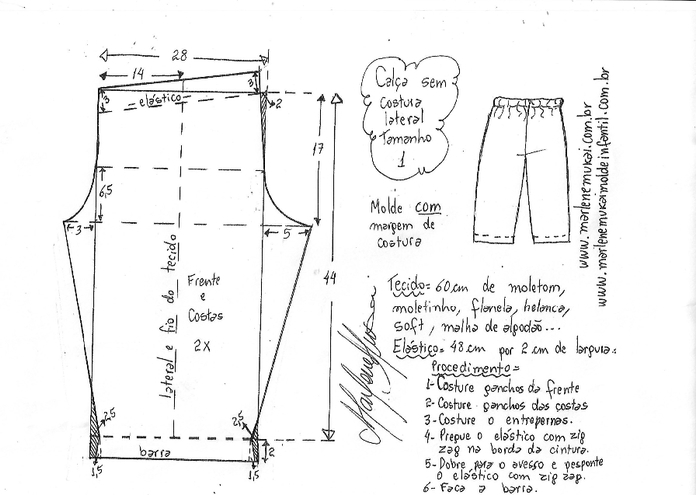 28
14
3
3
elástico
2
17
6,5
3
5
44
lateral e fio do tecido
Frente
e
Costas
2x
2,5
2,5
barra
2
1,5
1,5
Calça sem
costura
lateral
Tamanho
1
Molde com
margem de
costura
www.marlenemukai.com.br
www.marlenemukaimoldeinfantil.com.br
Tecido= 60cm de moletom,
moletinho, flanela, helanca,
soft, malha de algodão...
Elástico= 48cm por 2cm de largura.
Procedimento=
1- Costure ganchos da frente
2- Costure ganchos das costas
3- Costure o entrepernas.
4- Pregue o elástico com zig
zag na borda da cintura.
5- Dobre para o avesso e pesponte
o elástico com zig zag.
6- Faça a barra.